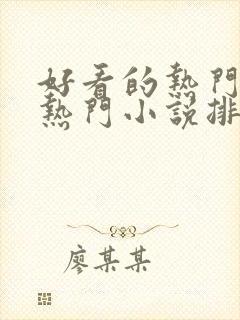 好看的熱門
熱門小說排
廖某某